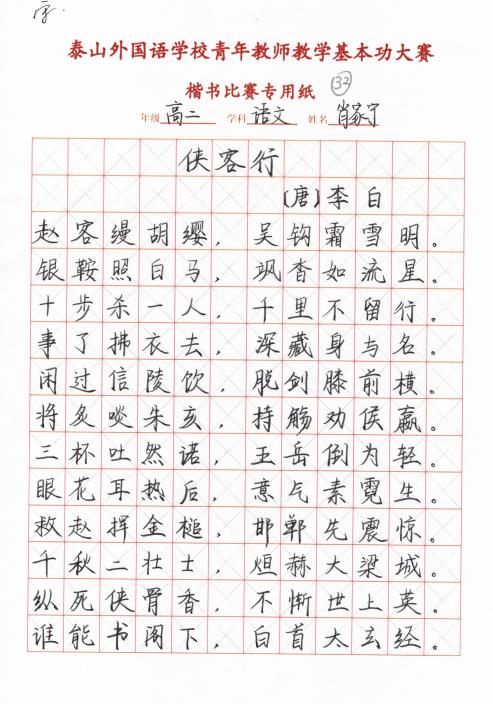 泰山外国语学校青年教师教学基本功大赛
楷书比赛专用纸 32
年级 高二 学科 语文 姓名 肖家宁
侠客行
(唐)李白
赵客缦胡缨,吴钩霜雪明。
银鞍照白马,飒沓如流星。
十步杀一人,千里不留行。
事了拂衣去,深藏身与名。
闲过信陵饮,脱剑膝前横。
将炙啖朱亥,持觞劝侯嬴。
三杯吐然诺,五岳倒为轻。
眼花耳热后,意气素霓生。
救赵挥金槌,邯郸先震惊。
千秋二壮士,烜赫大梁城。
纵死侠骨香,不惭世上英。
谁能书阁下,白首太玄经。